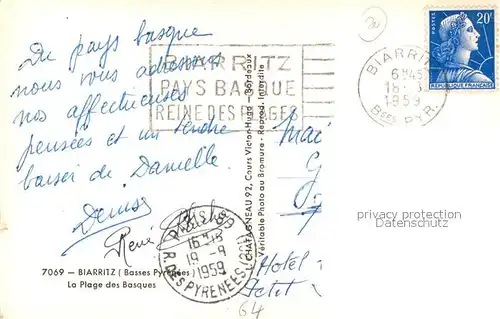 Du pays basque
nous vous adressons
nos affectueuses
pensées et un tendre
baiser de Danielle
Denise
René
7069 — BIARRITZ (Basses Pyrénées)
La Plage des Basques
BIARRITZ
PAYS BASQUE
REINE DES PLAGES
L. CHATAGNEAU 92, Cours Victor-Hugo - Bordeaux
Véritable Photo au Bromure - Reprod. Interdite
BIARRITZ
6H45
18-
1959
Bses PYR.
POSTES
20F
REPUBLIQUE FRANÇAISE
R. DES PYRENEES
19-9
1959
Hotel
Petit
64
privacy protection
DatumsSchutz